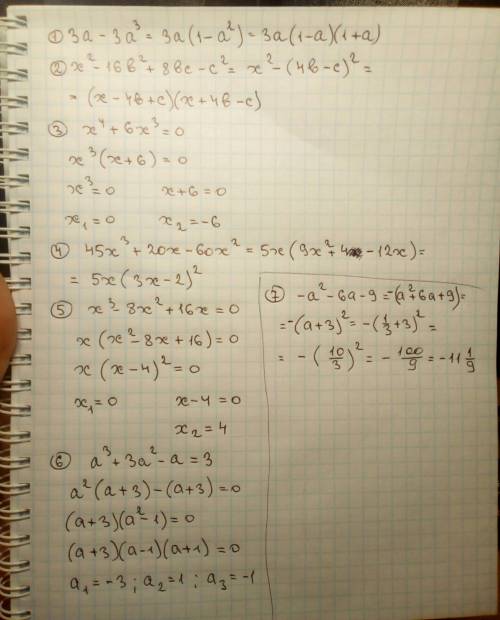 ① 3a - 3a³ = 3a(1-a²) = 3a(1-a)(1+a)
② x² - 16в² + 8вс - с² = x² - (4в - с)² =
= (x - 4в + с)(x + 4в - с)
③ x⁴ + 6x³ = 0
x³(x+6) = 0
x³ = 0 x+6 = 0
x₁ = 0 x₂ = -6
④ 45x³ + 20x - 60x² = 5x(9x² + 4 - 12x) =
= 5x(3x-2)²
⑤ x³ - 8x² + 16x = 0
x(x² - 8x + 16) = 0
x(x-4)² = 0
x₁ = 0 x-4 = 0
x₂ = 4
⑥ a³ + 3a² - a = 3
a²(a+3) - (a+3) = 0
(a+3)(a²-1) = 0
(a+3)(a-1)(a+1) = 0
a₁ = -3; a₂ = 1; a₃ = -1
⑦ -a² - 6a - 9 = -(a² + 6a + 9) =
= -(a+3)² = -(1/3 + 3)² =
= -(10/3)² = -100/9 = -11 1/9